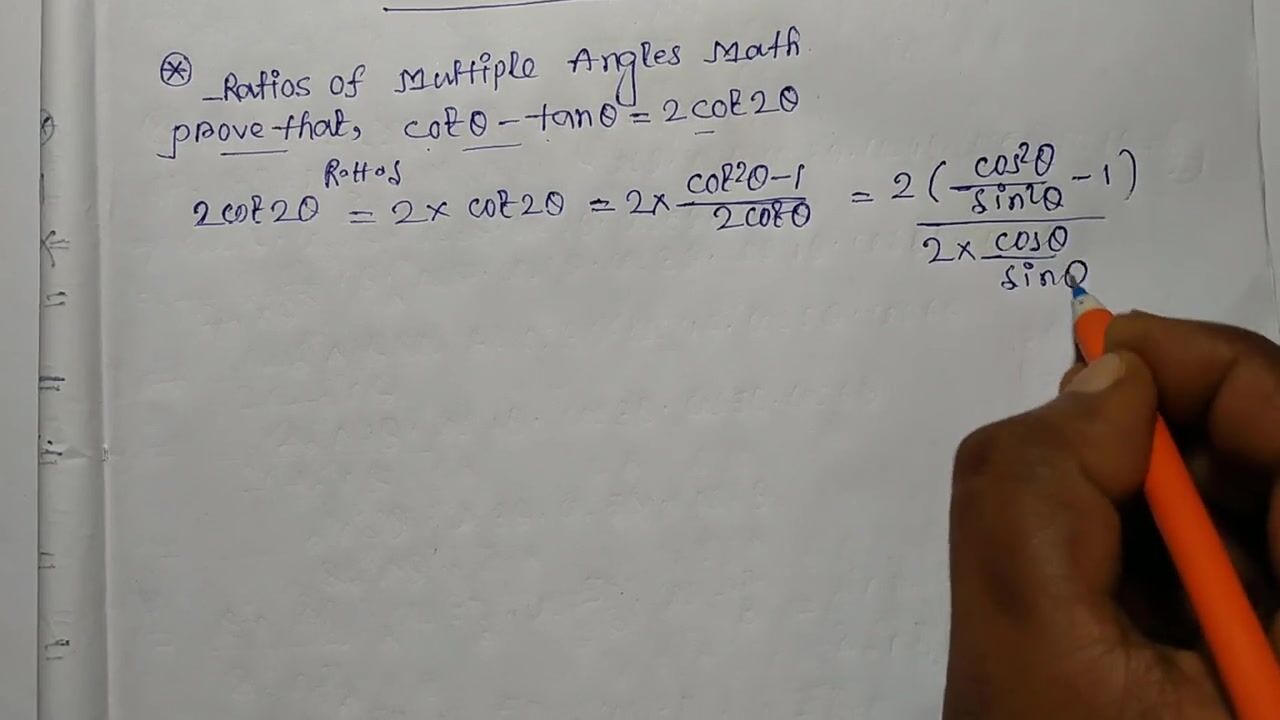 ⊛ Ratios of Multiple Angles Math.
prove that, cotθ - tanθ = 2cot2θ
Rattos
2cot2θ = 2 × cot2θ = 2 × (cot²θ-1)/(2cotθ) = 2(cos²θ/sin²θ - 1)/(2 × cosθ/sinθ)